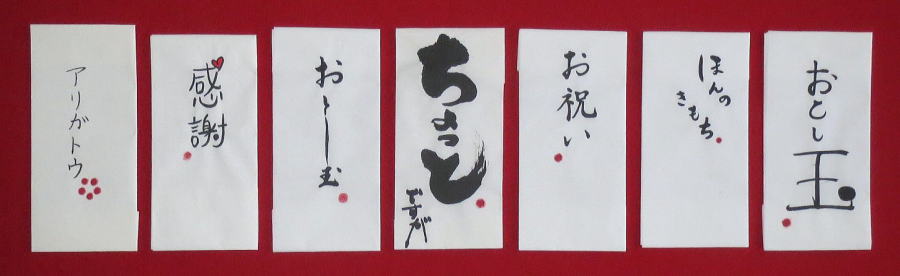 アリガトウ
感謝
おとし玉
ちょっと
ですが
お祝い
ほんの
きもち
おとし玉